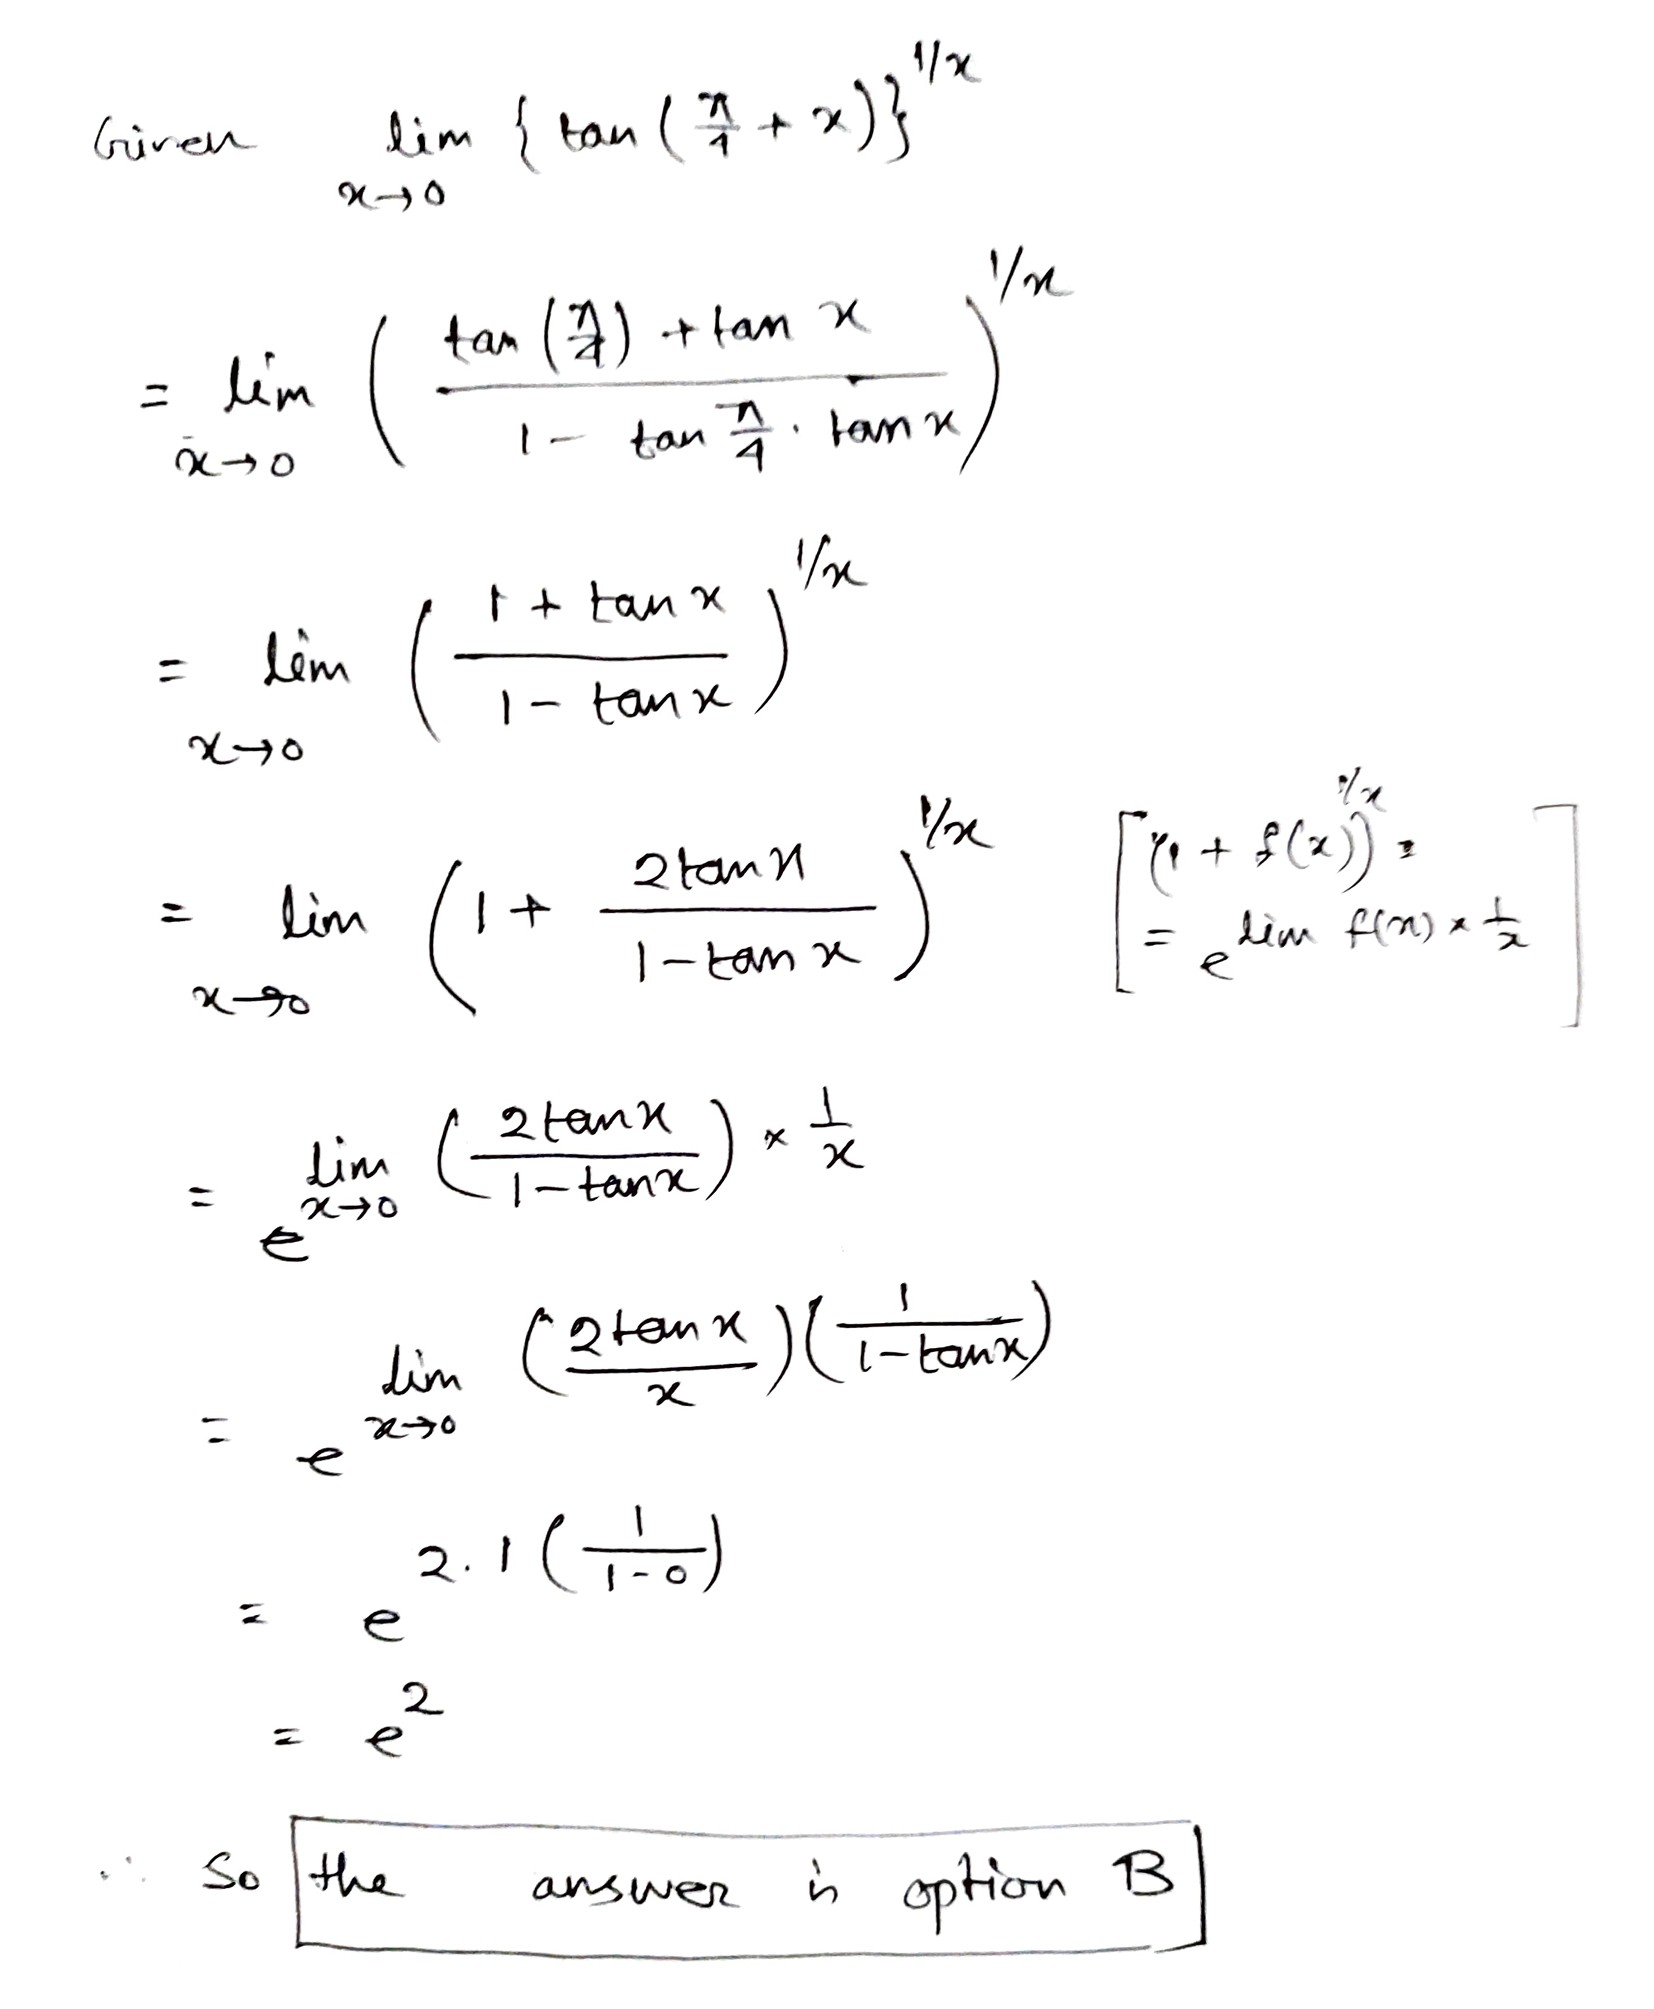 Given lim x→0 { tan ( π/4 + x ) }^1/x
= lim x→0 ( tan (π/4) + tan x / 1 - tan π/4 . tan x )^1/x
= lim x→0 ( 1 + tan x / 1 - tan x )^1/x
= lim x→0 ( 1 + 2tan x / 1 - tan x )^1/x [ (1 + f(x))^1/x =
= e^lim f(x) × 1/x ]
= e^lim x→0 ( 2tanx / 1 - tanx ) × 1/x
= e^lim x→0 ( 2tan x / x ) ( 1 / 1 - tanx )
= e^2.1 ( 1 / 1 - 0 )
= e^2
∴ So the answer is option B